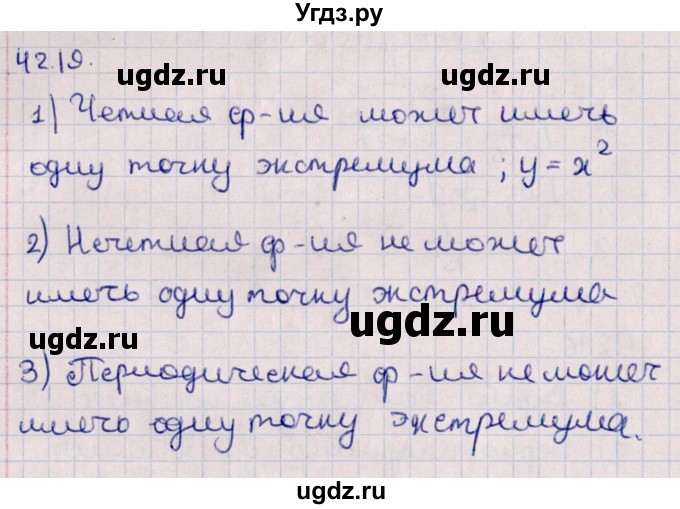 Угдз.ру
42.19.
ugdz.ru ugdz.ru
1) Четная ф-ия может иметь
одну точку экстремума ; y = x²
2) Нечетная ф-ия не может
иметь одну точку экстремума
ugdz.ru ugdz.ru
3) Периодическая ф-ия не может
иметь одну точку экстремума.
ugdz.ru ugdz.ru
ugdz.ru